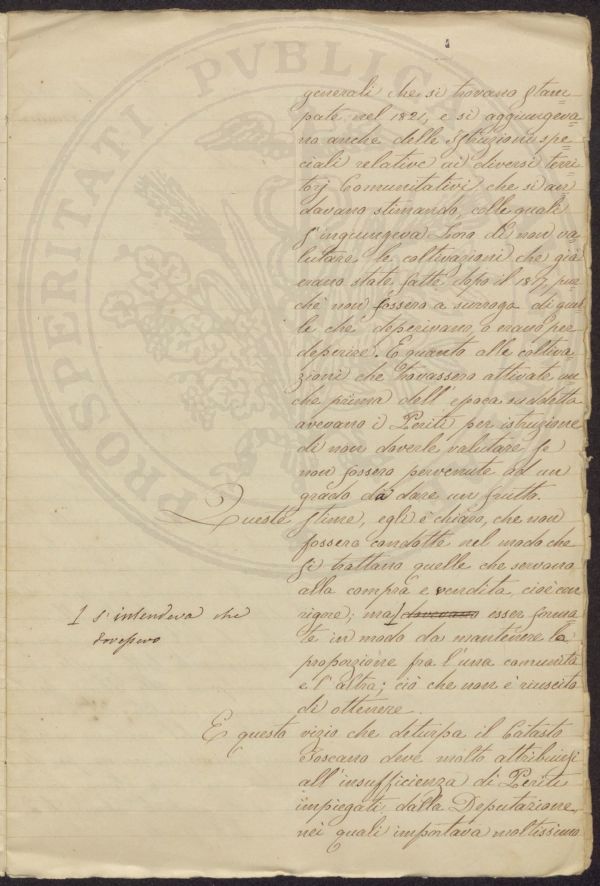 generali che si trovano stam=
pate nel 1821, e si aggiungeva=
no anche delle Istruzioni spe=
ciali relative ai diversi terri=
torj Comunitativi che si an=
davano stimando, colle quali
s'ingiungeva Loro di non va=
lutare le coltivazioni che già
erano state fatte dopo il 1817, pur
chè non fossero a surroga di quel
le che deperivano, o erano per
deperire. E quanto alle coltiva
zioni che trovassero attivate an
che prima dell'epoca suddetta
avevano i Periti per istruzione
di non doverle valutare se
non fossero pervenute ad un
grado da dare un frutto.
Queste stime, egli è chiaro, che non
fossero condotte nel modo che
si trattano quelle che servono
alla compra e vendita, cioè con
rigore; ma dovevano esser forma
te in modo da mantenere la
proporzione fra l'una comunità
e l'altra; ciò che non è riuscito
di ottenere.
E questo vizio che deturpa il Catasto
Toscano deve molto attribuirsi
all'insufficienza di Periti
impiegati dalla Deputazione,
nei quali importava moltissimo
s'intendeva che
dovessero
PROSPERITATI PVBLICA